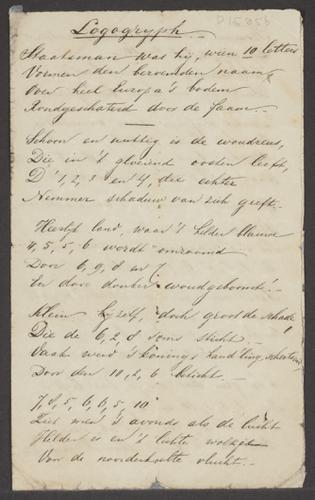 D15056
Logogryph
Staatsman was hij, wien 10 letters
Vormen den beroemden naam,
Over heel Europa's bodem
Rondgeschaterd door de faam.
Schoon en nuttig is de woudreus,
Die in 't gloeiend oosten leeft,
D' 1, 2, 3 en 4, die echter
Nimmer schaduw van zich geeft.
Heerlijk land, waar 't helder blauwe
4, 5, 5, 6 wordt omzoomd
Door 6, 9, 8 en 7
En door donker woudgeboomt'.
Klein hijzelf, doch groot de schade,
Die de 6, 2, 8 soms sticht.
Vaak werd 's Konings handling
Door den 10, 2, 6 belicht.
7, 8, 5, 6, 6, 5, 10
Ziet men 's avonds als de lucht
Helder is en 't lichte wolkje
Voor de noorderkoelte vlucht.